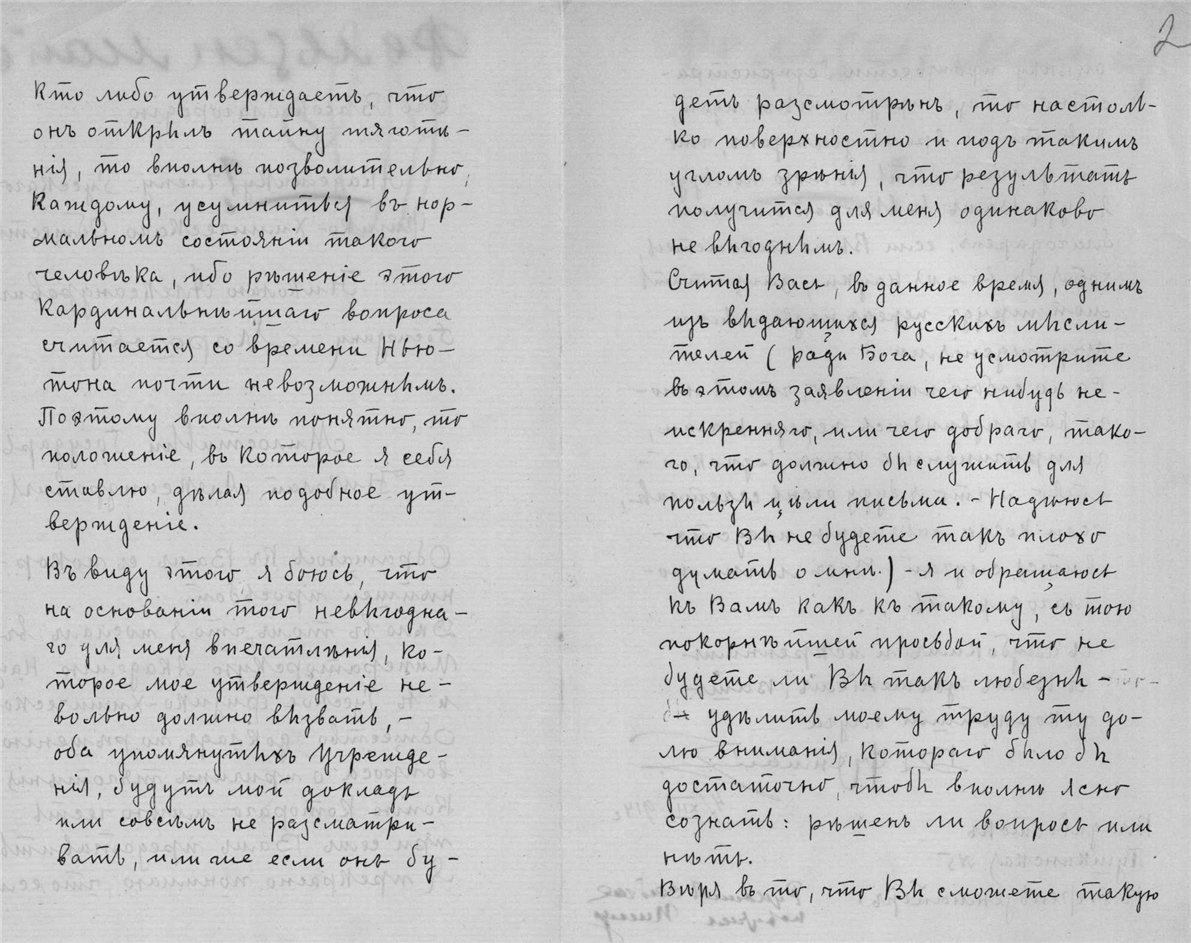 2
Кто либо утверждаетъ, что
онъ открылъ тайну тяготѣ-
нія, то вполнѣ позволительно,
каждому, усумниться въ нор-
мальномъ состояніи такого
человѣка, ибо рѣшеніе этого
кардинальнѣйшаго вопроса
считается со времени Нью-
тона почти невозможнымъ.
Поэтому вполнѣ понятно, то
положеніе, въ которое я себя
ставлю, дѣлая подобное ут-
вержденіе.
Въ виду этого я боюсь, что
на основаніи того невыгодна-
го для меня впечатлѣнія, ко-
торое мое утвержденіе не-
вольно должно вызвать, -
оба упомянутыхъ Учрежде-
нія, будутъ мой докладъ
или совсѣмъ не разсматри-
вать, или же если онъ бу-
детъ разсмотрѣнъ, то настоль-
ко поверхностно и подъ такимъ
угломъ зрѣнія, что результатъ
получится для меня одинаково
не выгоднымъ.
Считая Васъ, въ данное время, однимъ
изъ выдающихся русскихъ мысли-
телей (ради Бога, не усмотрите
въ этомъ заявленіи чего нибудь не-
искренняго, или чего добраго, тако-
го, что должно бы служить для
пользы цѣли письма. - Надѣюсь
что Вы не будете такъ плохо
думать о мнѣ.) - я и обращаюсь
къ Вамъ какъ къ такому, съ тою
покорнѣйшей просьбой, что не
будете ли Вы такъ любезны -
удѣлить моему труду ту до-
лю вниманія, котораго было бы
достаточно, чтобы вполнѣ ясно
сознать: рѣшенъ ли вопросъ или
нѣтъ.
Вѣря въ то, что Вы сможете такую